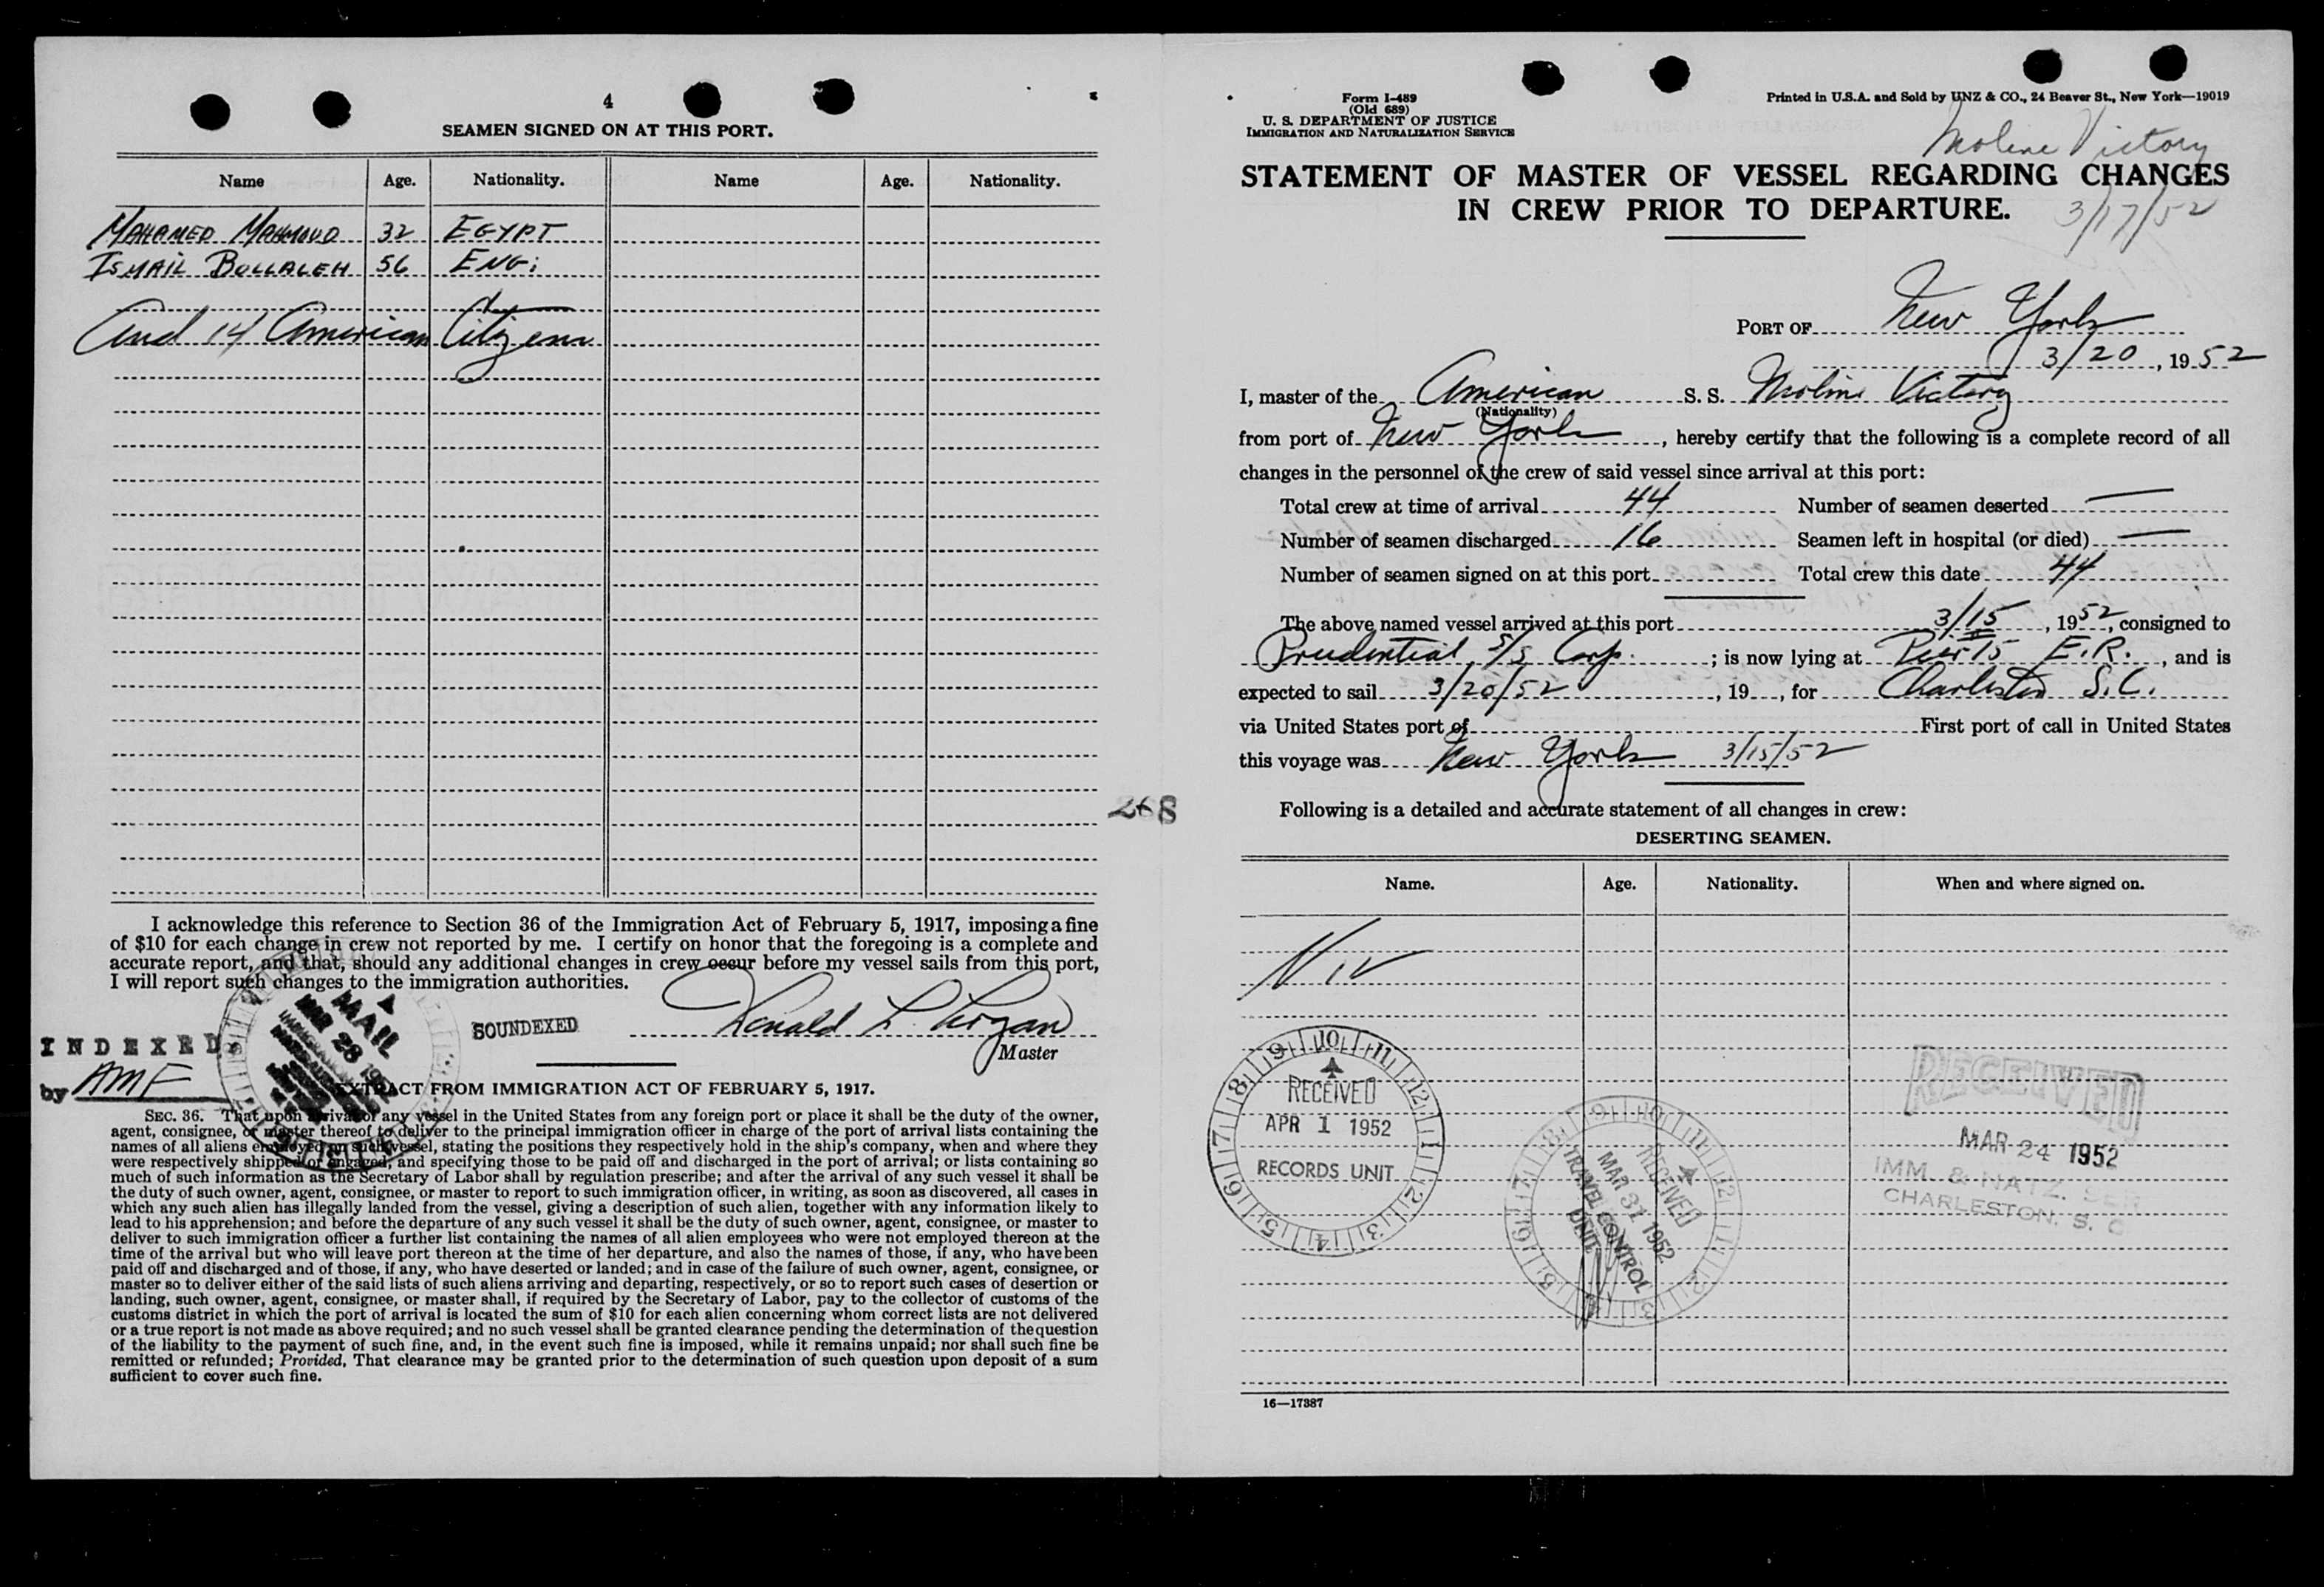 4
SEAMEN SIGNED ON AT THIS PORT.
Name Age. Nationality. Name Age. Nationality.
MAHAMED MAHMOUD 32 EGYPT
ISMAIL BULLALEH 56 ENG:
And 14 American Citizens
I acknowledge this reference to Section 36 of the Immigration Act of February 5, 1917, imposing a fine
of $10 for each change in crew not reported by me. I certify on honor that the foregoing is a complete and
accurate report, and that, should any additional changes in crew occur before my vessel sails from this port,
I will report such changes to the immigration authorities.
MAIL
MAR 28
SOUNDEXED
Donald L.
Master
INDEXED
by AMF
EXTRACT FROM IMMIGRATION ACT OF FEBRUARY 5, 1917.
SEC. 36. That upon arrival of any vessel in the United States from any foreign port or place it shall be the duty of the owner,
agent, consignee, or master thereof to deliver to the principal immigration officer in charge of the port of arrival lists containing the
names of all aliens employed on such vessel, stating the positions they respectively hold in the ship's company, when and where they
were respectively shipped or engaged, and specifying those to be paid off and discharged in the port of arrival; or lists containing so
much of such information as the Secretary of Labor shall by regulation prescribe; and after the arrival of any such vessel it shall be
the duty of such owner, agent, consignee, or master to report to such immigration officer, in writing, as soon as discovered, all cases in
which any such alien has illegally landed from the vessel, giving a description of such alien, together with any information likely to
lead to his apprehension; and before the departure of any such vessel it shall be the duty of such owner, agent, consignee, or master to
deliver to such immigration officer a further list containing the names of all alien employees who were not employed thereon at the
time of the arrival but who will leave port thereon at the time of her departure, and also the names of those, if any, who have been
paid off and discharged and of those, if any, who have deserted or landed; and in case of the failure of such owner, agent, consignee, or
master so to deliver either of the said lists of such aliens arriving and departing, respectively, or so to report such cases of desertion or
landing, such owner, agent, consignee, or master shall, if required by the Secretary of Labor, pay to the collector of customs of the
customs district in which the port of arrival is located the sum of $10 for each alien concerning whom correct lists are not delivered
or a true report is not made as above required; and no such vessel shall be granted clearance pending the determination of the question
of the liability to the payment of such fine, and, in the event such fine is imposed, while it remains unpaid; nor shall such fine be
remitted or refunded; Provided, That clearance may be granted prior to the determination of such question upon deposit of a sum
sufficient to cover such fine.
268
Form I-489
(Old 689)
U. S. DEPARTMENT OF JUSTICE
IMMIGRATION AND NATURALIZATION SERVICE
Printed in U.S.A. and Sold by UNZ & CO., 24 Beaver St., New York—19019
Moline Victory
STATEMENT OF MASTER OF VESSEL REGARDING CHANGES
IN CREW PRIOR TO DEPARTURE.
3/17/52
PORT OF New York
3/20, 1952
I, master of the American S. S. Moline Victory
(Nationality)
from port of New York, hereby certify that the following is a complete record of all
changes in the personnel of the crew of said vessel since arrival at this port:
Total crew at time of arrival 44 Number of seamen deserted —
Number of seamen discharged 16 Seamen left in hospital (or died) —
Number of seamen signed on at this port Total crew this date 44
The above named vessel arrived at this port 3/15, 1952, consigned to
Prudential S/S Corp. ; is now lying at Pier 15 E.R., and is
expected to sail 3/20/52, 19 , for Charleston S.C.
via United States port of First port of call in United States
this voyage was New York 3/15/52
Following is a detailed and accurate statement of all changes in crew:
DESERTING SEAMEN.
Name. Age. Nationality. When and where signed on.
RECEIVED
APR 1 1952
RECORDS UNIT
RECEIVED
MAR 31 1952
TRAVEL CONTROL
UNIT
RECEIVED
MAR 24 1952
IMM. & NATZ. SER.
CHARLESTON, S. C.
16—17387